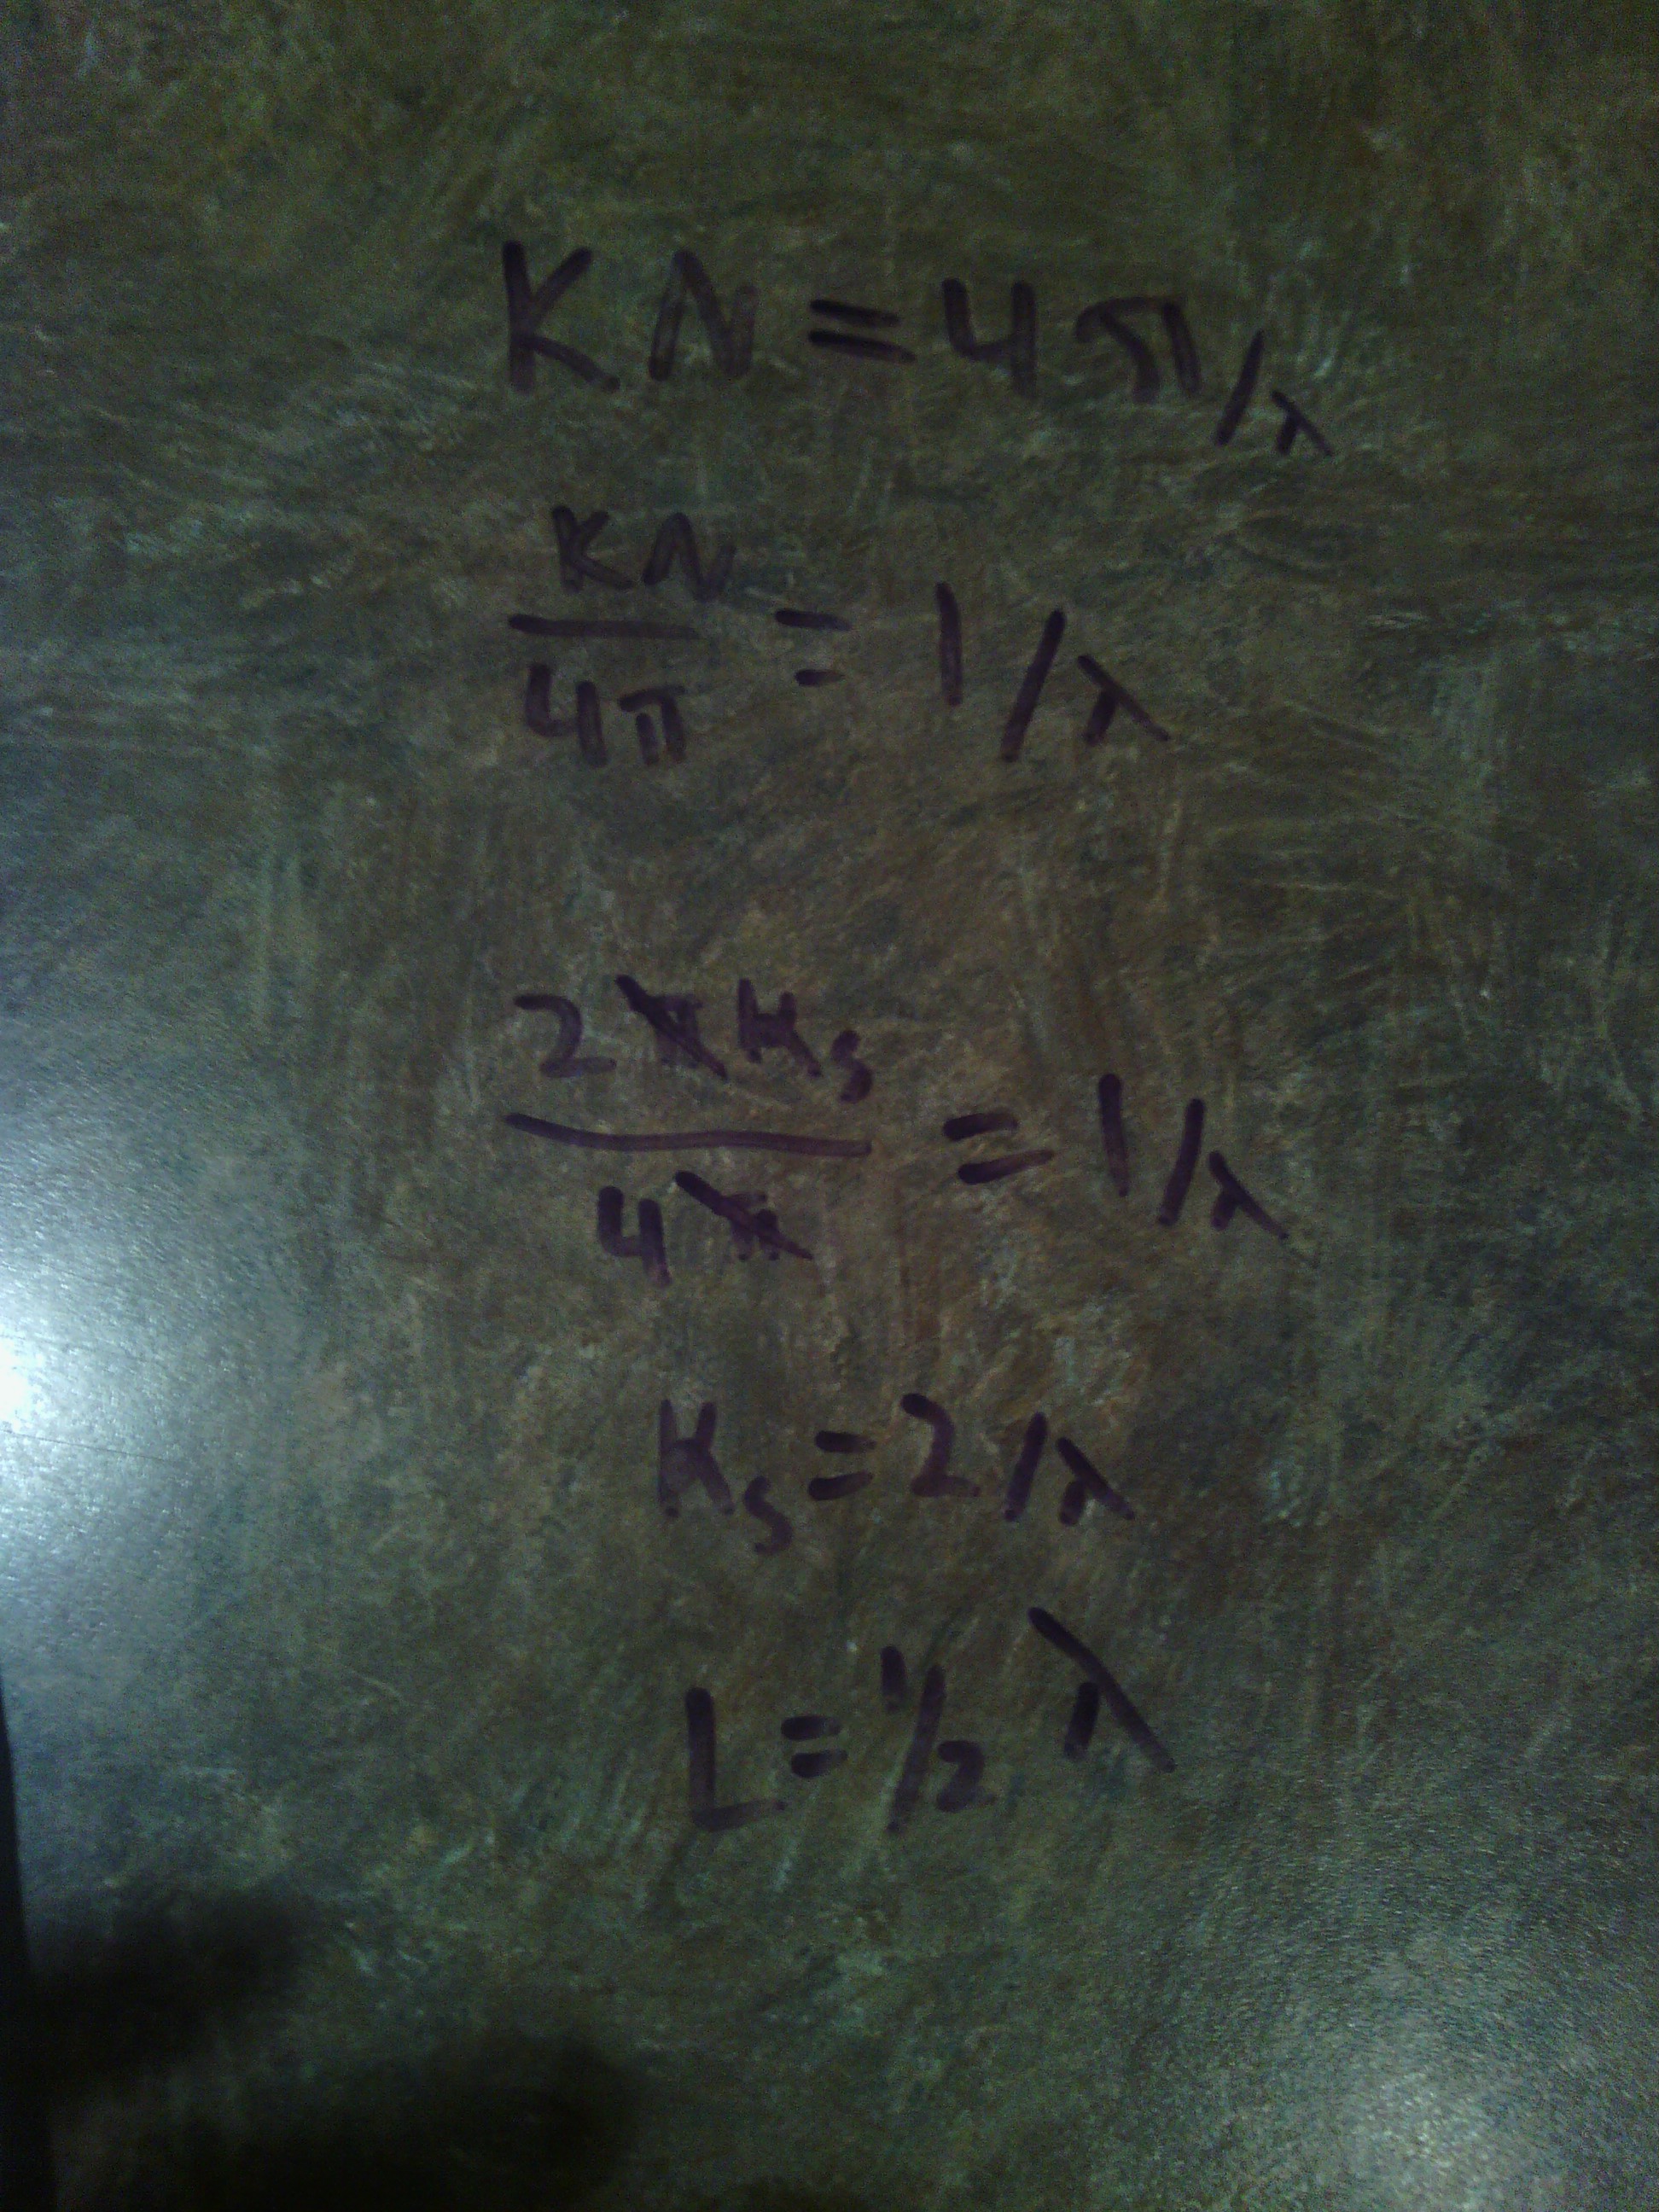 KN = 4π/λ
KN/4π = 1/λ
2πKs/4π = 1/λ
Ks = 2/λ
L = 1/2 λ